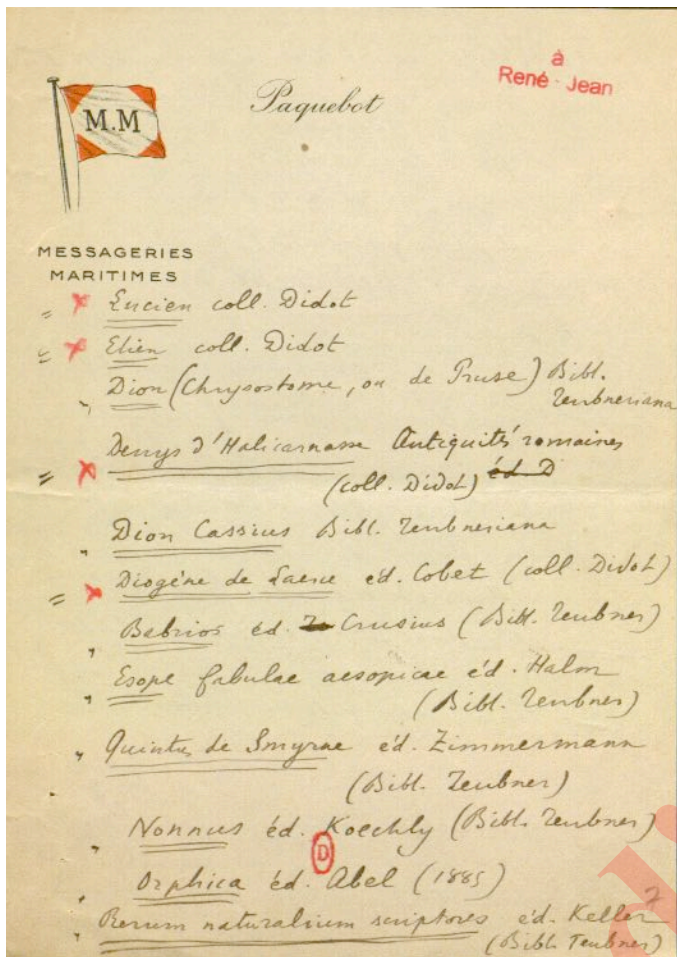 à
René - Jean
Paquebot
M.M
MESSAGERIES
MARITIMES
= x Lucien coll. Didot
= x Elien coll. Didot
" Dion (Chrysostome, ou de Pruse) Bibl.
Teubneriana
Denys d'Halicarnasse Antiquités romaines
= x (coll. Didot) éd. D
" Dion Cassius Bibl. Teubneriana
= x Diogène de Laerce éd. Cobet (coll. Didot)
" Babrios éd. Crusius (Bibl. Teubner)
" Esope fabulae aesopicae éd. Halm
(Bibl. Teubner)
" Quintus de Smyrne éd. Zimmermann
(Bibl. Teubner)
" Nonnus éd. Koechly (Bibl. Teubner)
D
" Orphica éd. Abel (1885)
" Rerum naturalium scriptores éd. Keller
(Bibl. Teubner)